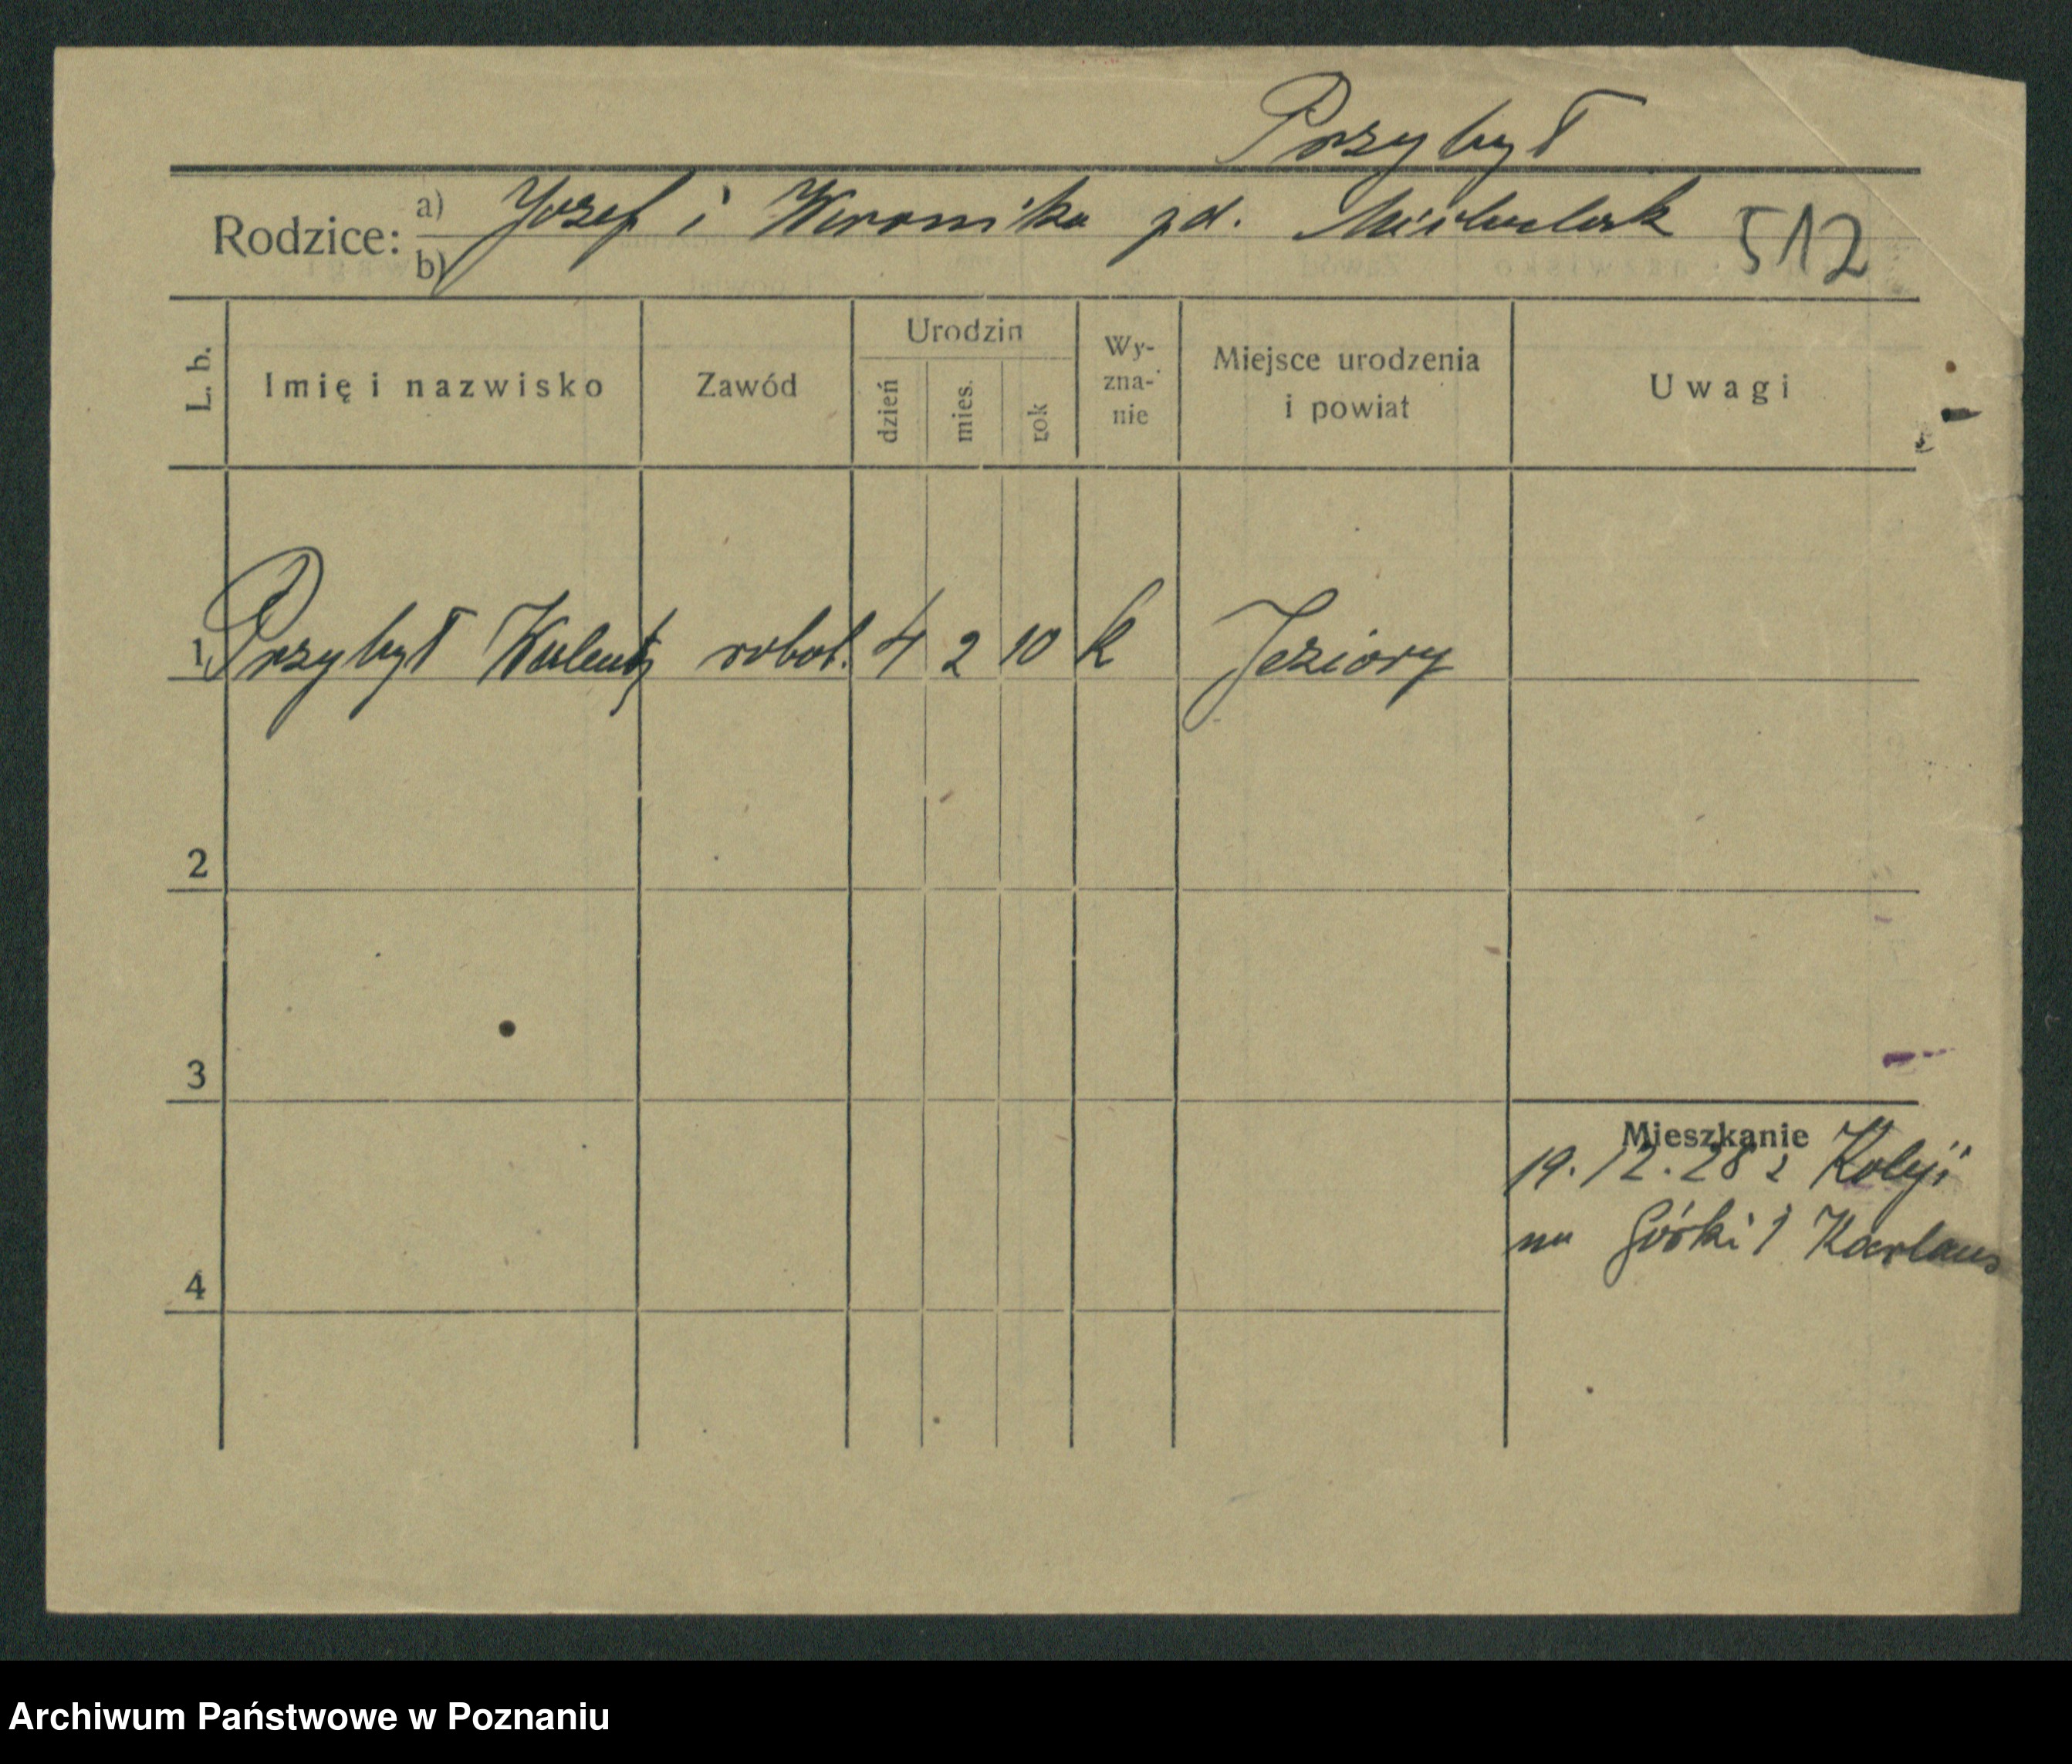 Przybył
Rodzice: a) Jozef i Weronika zd.
b)
512
L. b. Imię i nazwisko Zawód Urodzin dzień mies. rok Wy-zna-nie Miejsce urodzenia i powiat Uwagi
1 Przybył Walenty robot. 4 2 10 k Jeziory
2
3
Mieszkanie
19. 12. 28 z Koleji
na Górki 1
4
Archiwum Państwowe w Poznaniu